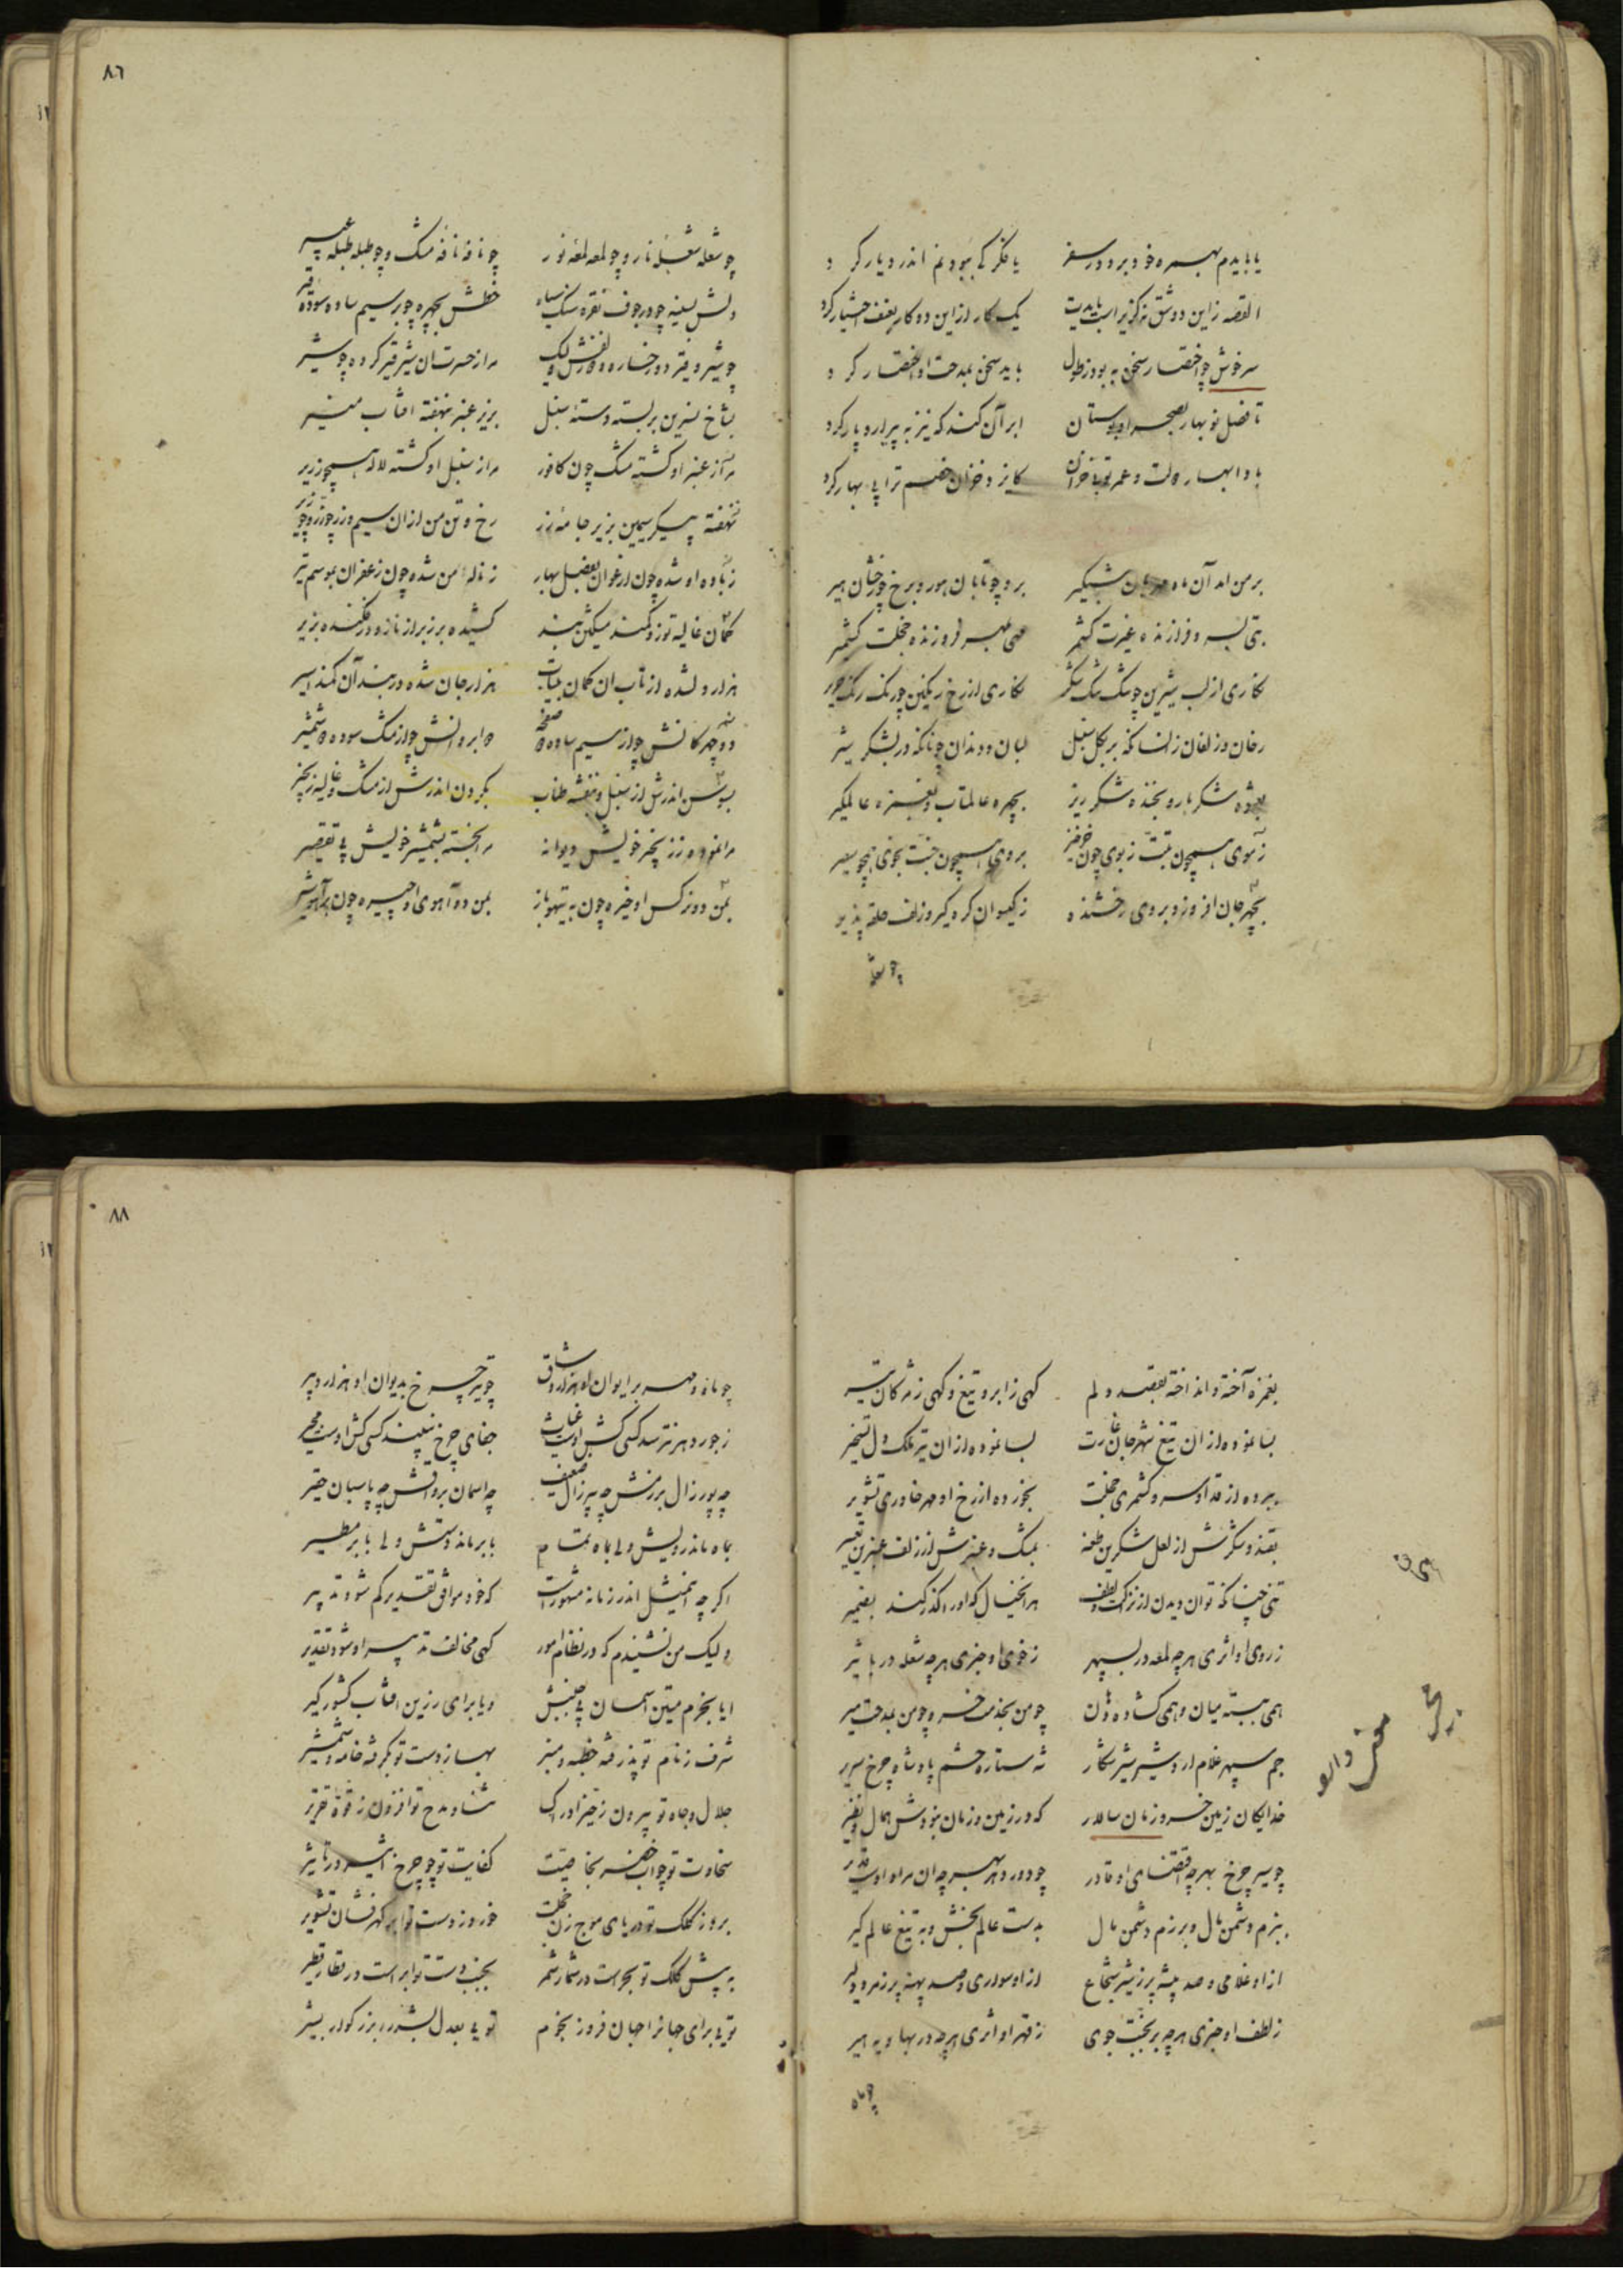 ٨٦
یا بایدم بهمره خود برد در سفر یا فکر کی بودنم اندر دیار کرد
القصه زاین دو شق نه گزیر است بایدیت یک کار از این دو کار اختیار کرد
سرخوش چو اختصار سخن به بود ز طول باید سخن بمدحت او اختصار کرد
تا فصل نوبهار بصحرا و بوستان ابر آن کند که نیز به پیرار و پار کرد
بادا بهار دولت و عمر تو بی خزان کایزد خزان خصم ترا بی بهار کرد
بر من امد آن ماه مهربان شبگیر برو چو تابان هور و برخ چو رخشان هیر
بتی بسرو فرازنده غیرت کشمر مهی بچهر فروزنده خجلت کشمیر
نگاری از لب شیرین چو تنگ تنگ شکر نگاری از رخ رنگین چو رنگ رنگ
رخان و زلفان زانسانکه بر بگل سنبل لبان و دندان چونانکه در بشکر شیر
بعشوه شکر بار و بخنده شکر ریز بچهره عالمتاب و بغمزه عالمگیر
ز موی همچون تبت ز بوی چون خرخیز بروی همچون جنت بخوی همچو سعیر
بچهر جان افروز و بروی رخشنده ز گیسوان گره گیر و زلف حلقه پذیر
چو شعله
چو شعله شعله نار و چو لمعه لمعه نور چو نافه نافه مشک و چو طبله طبله عبیر
دلش بسینه چو در جوف نقره سنگ سیاه خطش بچهره چو بر سیم ساده سوده قیر
چو شیر و قیر دو رخساره و دو زلفش لیک مرا ز حسرت ان شیر قیر کرده چو شیر
بشاخ نسرین بربسته دسته سنبل بزیر عنبر نهفته افتاب منیر
مرا ز عنبر او گشته مشک چون کافور مرا ز سنبل او گشته لاله همچو زریر
نهفته پیکر سیمین بزیر جامه زر رخ و تن من از ان سیم و زر چو زر و چو
ز باده او شده چون ارغوان بفصل بهار ز ناله من شده چون زعفران بموسم تیر
کمان غالیه توز و کمند مشکین بند کشیده بر زبر از ناز و درفکنده بزیر
هزار دل شده از تاب ان کمان بیتاب هزار جان شده در بند آن کمند اسیر
دو چهرگانش چو از سیم ساده دو صفحه دو ابروانش چو از مشک سوده دو شمشیر
بدوش اندرش از سنبل و بنفشه طناب بگردن اندرش از مشک و غالیه زنجیر
مرا نموده ز زنجیر خویش دیوانه مرا بخسته بشمشیر خویش بی تقصیر
بمن دو نرگس او خیره چون به تیهو باز بمن دو آهوی او چیره چون بر آهو شیر
٨٨
بغمزه آخته و انداخته بقصد دلم گهی ز ابرو تیغ و گهی ز مژگان تیر
بسا نموده از ان تیغ شهر جان غارت بسا نموده از ان تیر ملک دل تسخیر
ببرده از قد او سرو کشمری خجلت بخورده از رخ او مهر خاوری تشویر
بقند و شکرش از لعل شکرین طعنه بمشک و عنبرش از زلف عنبرین تعییر
تنی چنانکه توان دیدن از نزاکت و لطف هر انخیال که او را گذر کند بضمیر
ز روی او اثری هر چه لمعه در بسپهر ز خوی او خبری هر چه شعله در
همی ببسته میان و همی گشاده دهان چو من بخدمت خسرو چو من بمدحت میر
جم سپهر غلام اردشیر شیر شکار شه ستاره حشم پادشاه چرخ سریر
خدایگان زمین خسرو زمان سالار که در زمین و زمان نبودش همال و نظیر
چو سیر چرخ بهر چه اقتضای او قادر چو دور دهر بهر چه ان مراد اوست قدیر
ببزم دشمن مال و برزم دشمن مال بدست عالم بخش و به تیغ عالم گیر
از او غلامی و صد بیشه پر ز شیر شجاع از او سواری و صد پهنه پر ز مرد دلیر
ز لطف او خبری هر چه بر بجنت جوی ز قهر او اثری هر چه در بهاویه هیر
چو ماه
چو ماه و مهر بر ایوان او هزار وشاق چو تیر چرخ بدیوان او هزار دبیر
ز جور دهر نترسد کسی کش اوست غیاث جفای چرخ نبیند کسی کش اوست مجیر
چه پور زال برزمش چه پیر زال ضعیف چه اسمان برواقش چه پاسبان حقیر
بماه ماند رویش ولی بماه تمام بابر ماند دستش ولی بابر مطیر
اگر چه این مثل اندر زمانه مشهور است که خود موافق تقدیر کم شود تدبیر
ولیک من نشنیدم که در نظام امور گهی مخالف تدبیر او شود تقدیر
ایا بحزم متین آسمان بی جنبش و یا برای رزین افتاب کشور گیر
شرف ز نام تو پذرفته خطبه و منبر بها ز دست تو بگرفته خامه و شمشیر
جلال و جاه تو بیرون ز حیز ادراک ثنا و مدح تو افزون ز قوة تحریر
سخاوت تو چو اب خضر بخاصیت کفایت تو چو چرخ اثیر در تاثیر
برد ز کلک تو دریای موج زن خجلت خورد ز دست تو ابر گهرفشان تشویر
به پیش کلک تو بحر است در شمار شمر بجنب دست تو ابر است در نظار قطیر
توئی برای جهانرا جهان فروز بحزم توئی بعدل بشر را بزرگوار بشیر